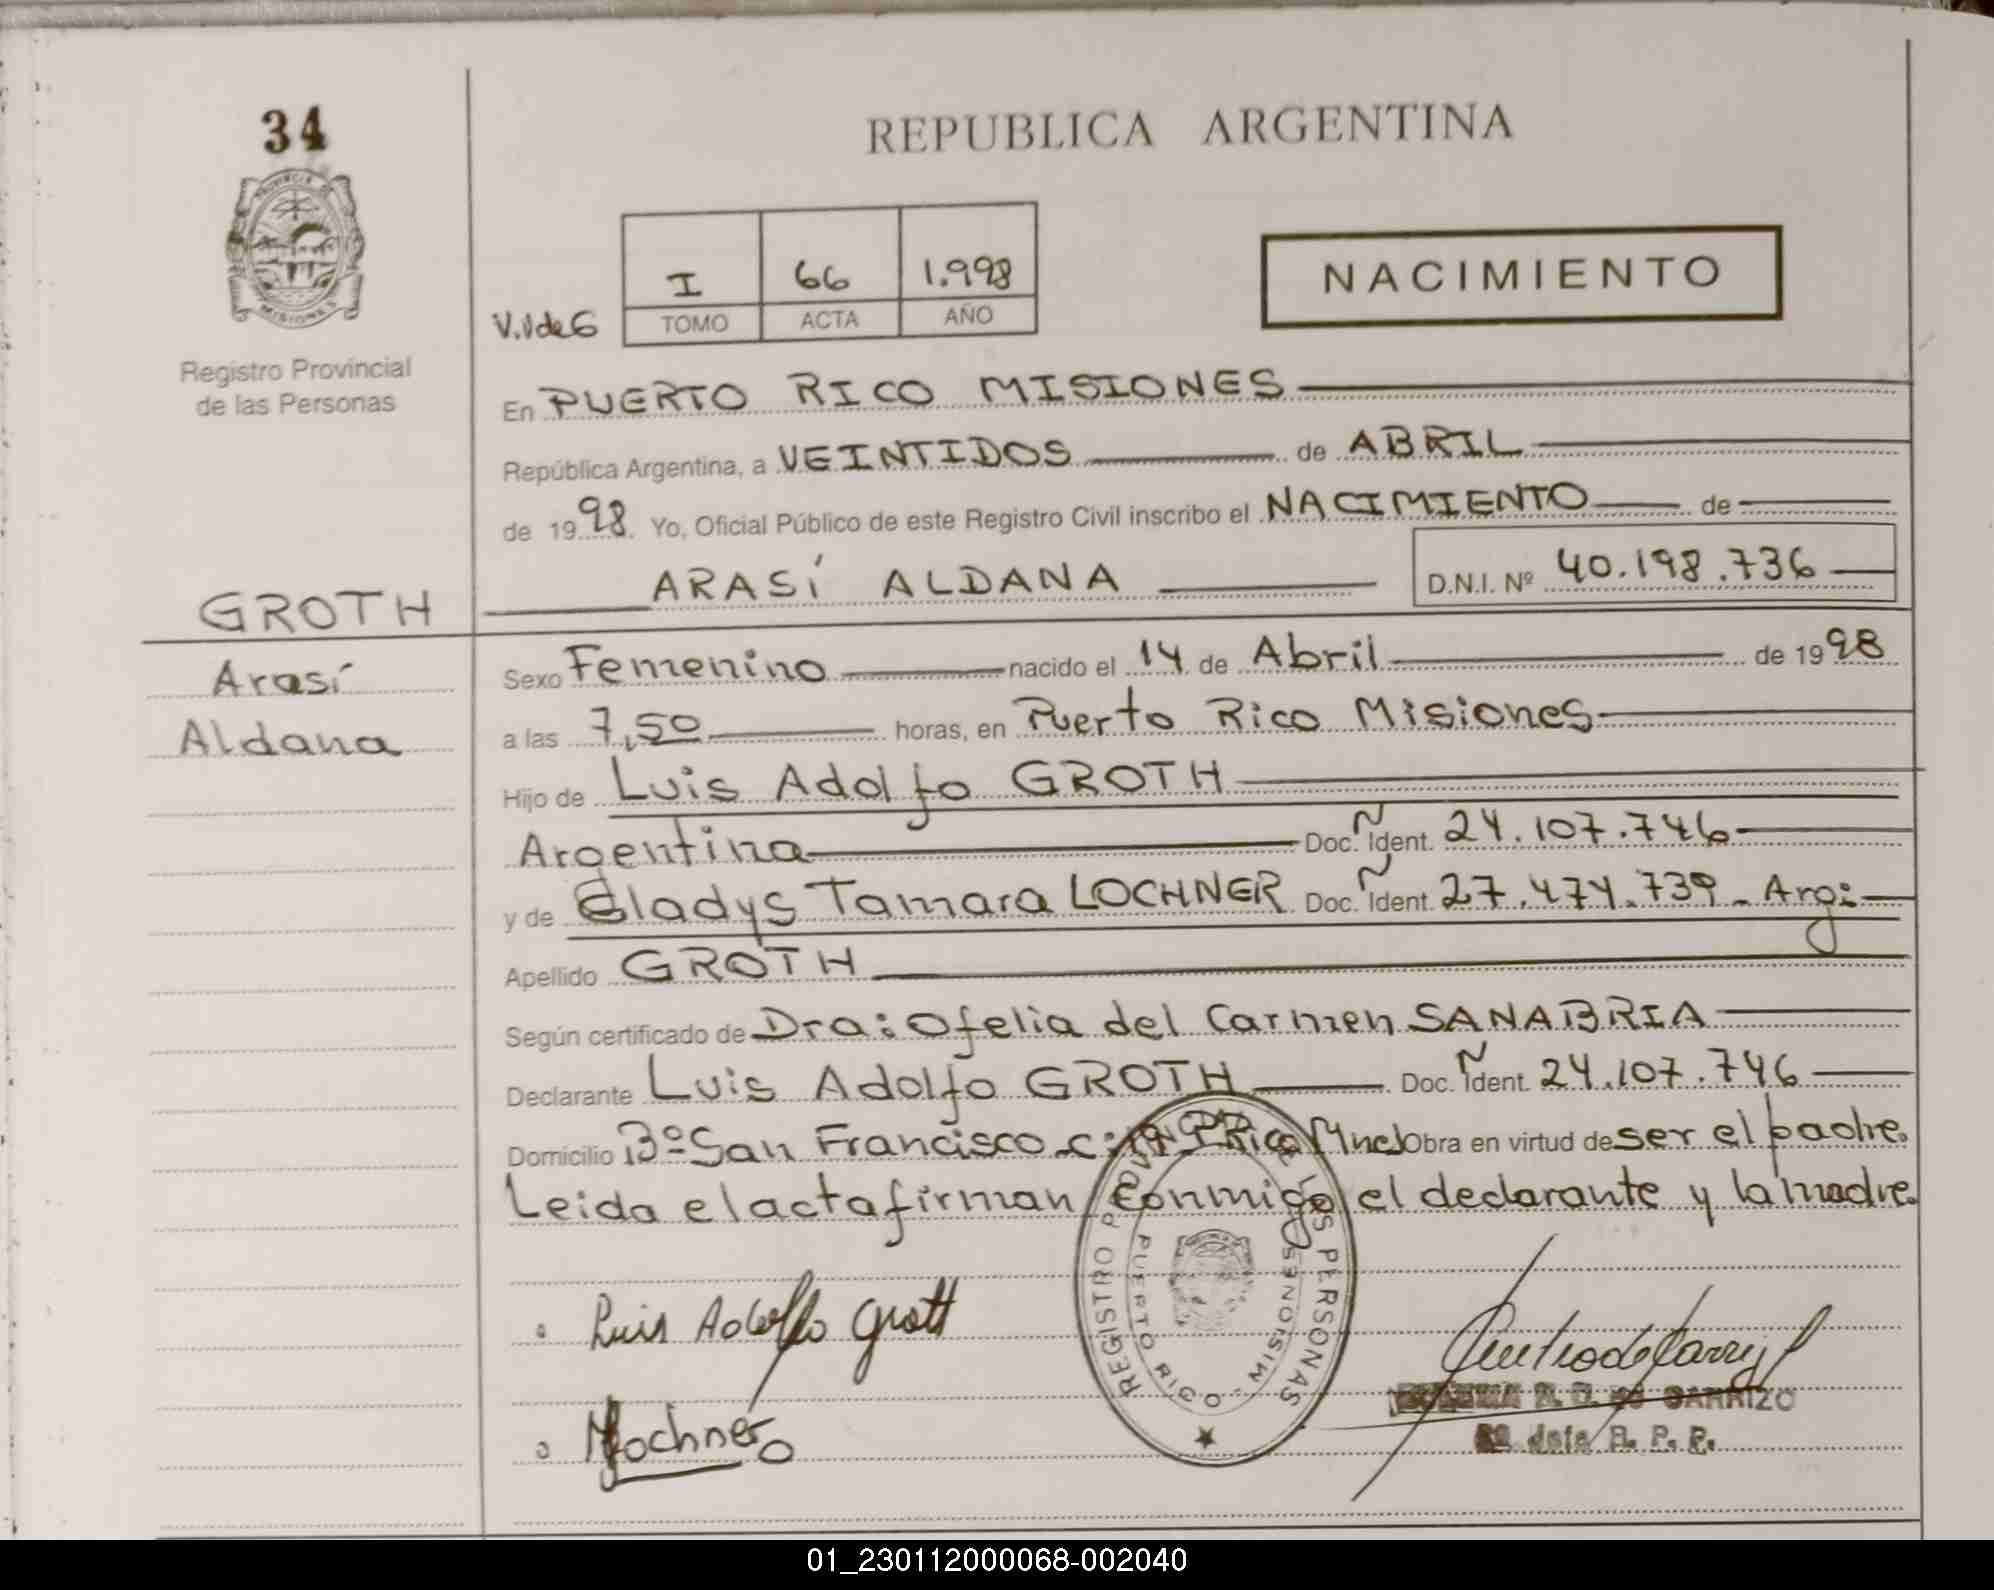 34
REPUBLICA ARGENTINA
PROVINCIA DE
MISIONES
Registro Provincial
de las Personas
I 66 1.998
TOMO ACTA AÑO
NACIMIENTO
En PUERTO RICO MISIONES
República Argentina, a VEINTIDOS de ABRIL
de 1998. Yo, Oficial Público de este Registro Civil inscribo el NACIMIENTO de
ARASÍ ALDANA D.N.I. Nº 40.198.736
GROTH
Arasí
Aldana
Sexo Femenino nacido el 14 de Abril de 1998
a las 7,50 horas, en Puerto Rico Misiones
Hijo de Luis Adolfo GROTH
Argentina Doc. Ident. 24.107.746
y de Gladys Tamara LOCHNER Doc. Ident. 27.474.739 - Arg:
Apellido GROTH
Según certificado de Dra: Ofelia del Carmen SANABRIA
Declarante Luis Adolfo GROTH Doc. Ident. 24.107.746
Domicilio Bº San Francisco Obra en virtud de ser el padre.
Leida el acta firman conmigo el declarante y la madre.
Luis Adolfo Groth
Lochner
REGISTRO PROVINCIAL DE LAS PERSONAS
PUERTO RICO - MISIONES
CARRIZO
R. P. P.
01_230112000068-002040